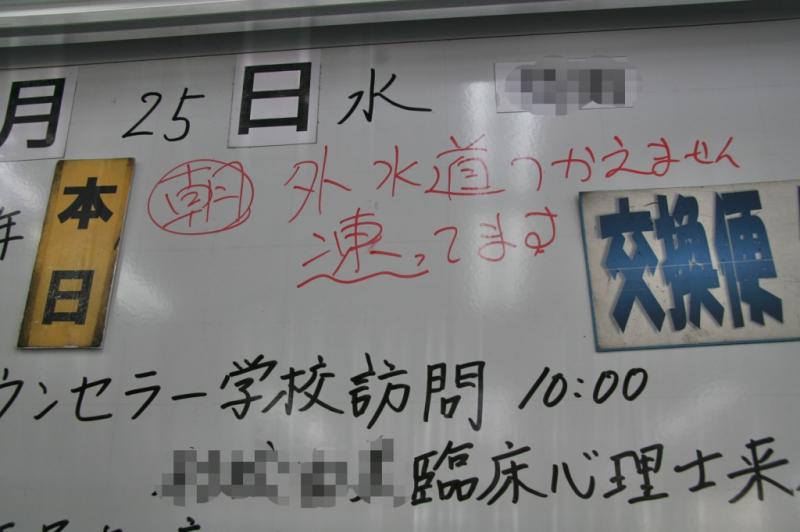 月 25 日 水
本日
朝 外水道つかえません
凍ってます
年
交換便
ウンセラー学校訪問 10:00
臨床心理士来